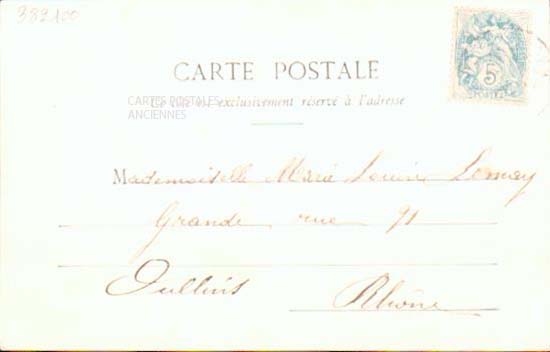 382100
CARTE POSTALE
Ce côté est exclusivement réservé à l'adresse
CARTES POSTALES
ANCIENNES
5
Mademoiselle Marie Louise
Grande rue 91
Oullins
Rhône